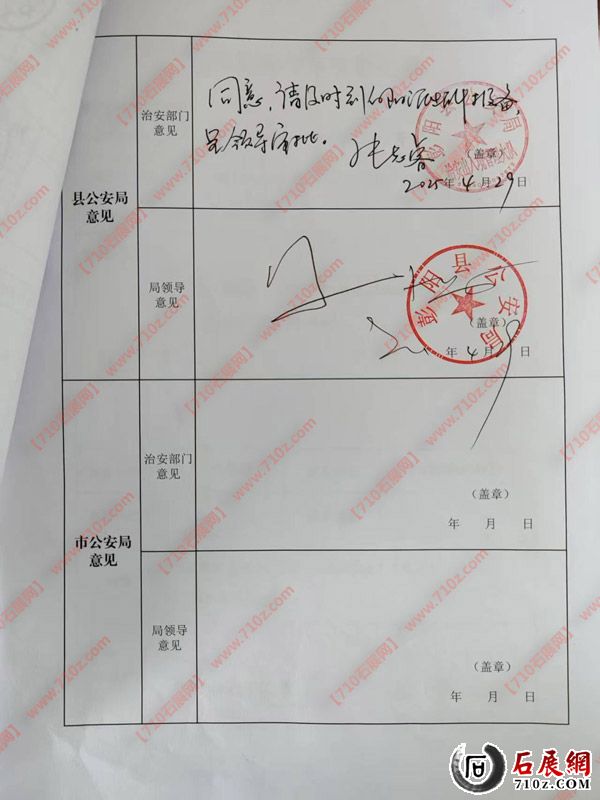 县公安局
意见
治安部门
意见
同意,请及时到
报备,
呈领导审批。
(盖章)
2025年4月29日
局领导
意见
彭阳县公安局
(盖章)
年4月29日
市公安局
意见
治安部门
意见
(盖章)
年 月 日
局领导
意见
(盖章)
年 月 日
【710石展网】www.710z.com
石展網
710z.com